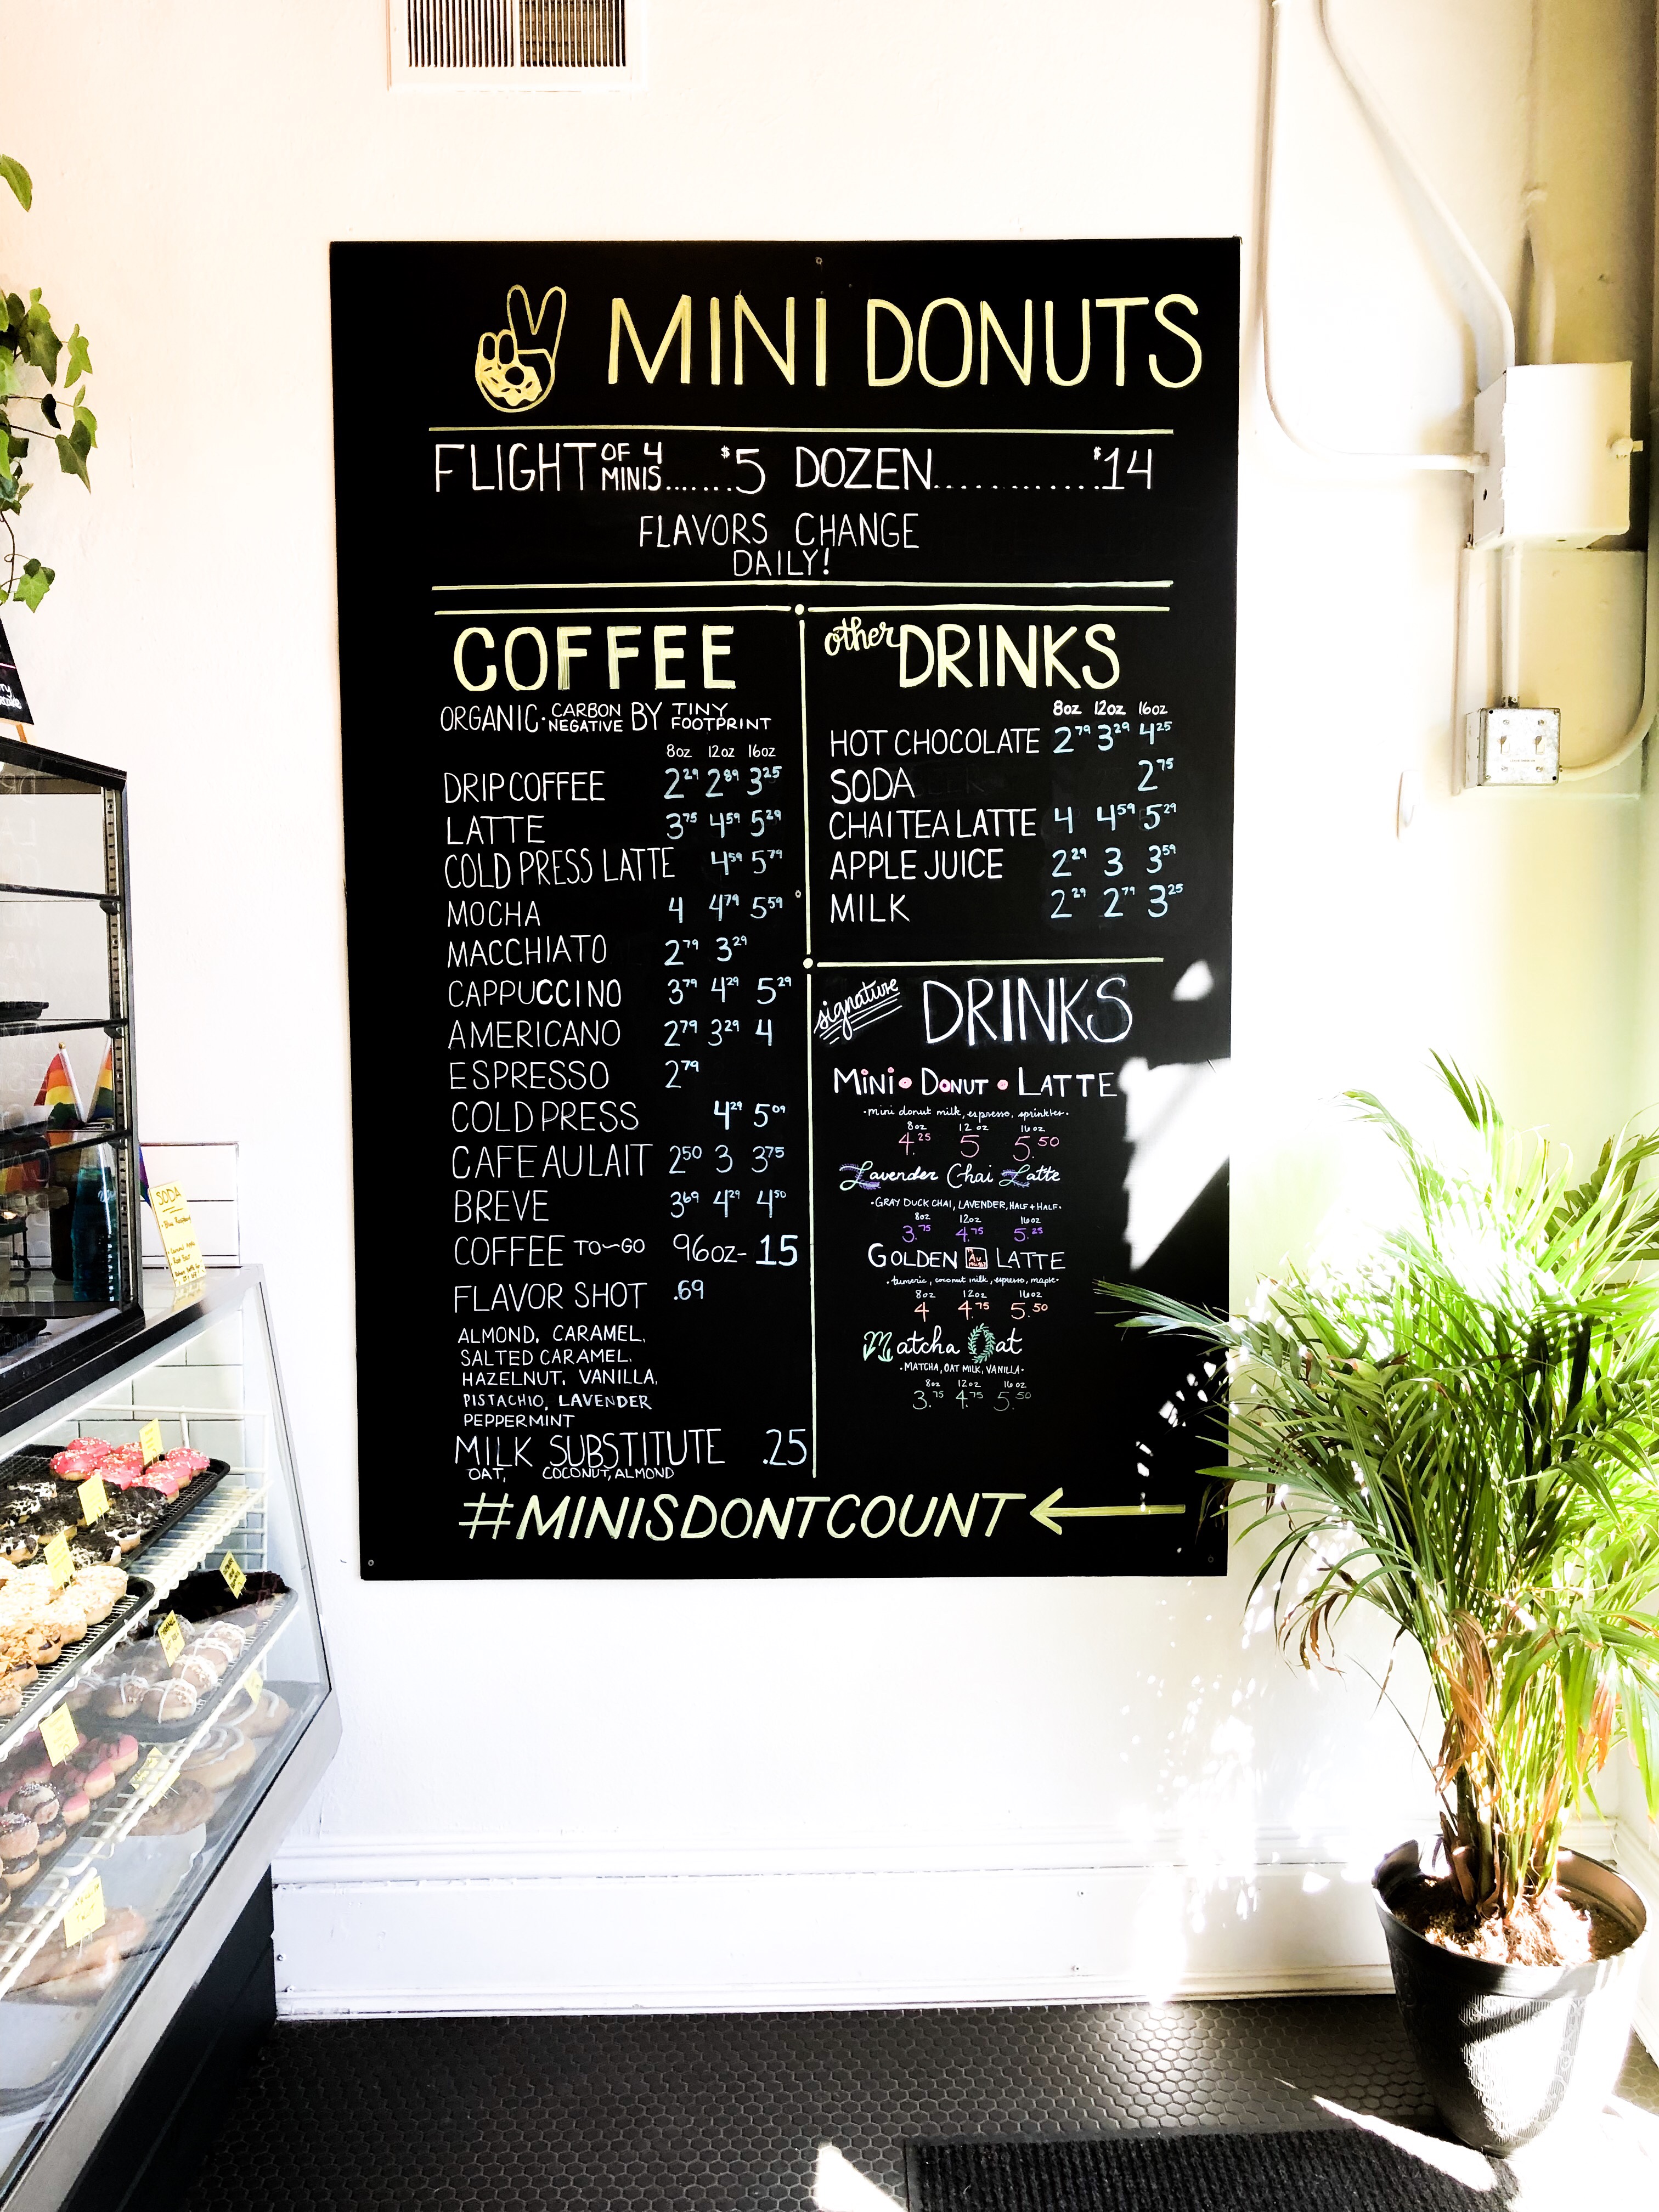 MINI DONUTS
FLIGHT OF 4 MINIS.......$5 DOZEN.............$14
FLAVORS CHANGE
DAILY!
COFFEE
ORGANIC · CARBON NEGATIVE BY TINY FOOTPRINT
8oz 12oz 16oz
DRIP COFFEE 2²⁹ 2⁸⁹ 3²⁵
LATTE 3⁷⁵ 4⁵⁹ 5²⁹
COLD PRESS LATTE 4⁵⁹ 5⁷⁹
MOCHA 4 4⁷⁹ 5⁵⁹
MACCHIATO 2⁷⁹ 3²⁹
CAPPUCCINO 3⁷⁹ 4²⁹ 5²⁹
AMERICANO 2⁷⁹ 3²⁹ 4
ESPRESSO 2⁷⁹
COLD PRESS 4²⁹ 5⁰⁹
CAFE AU LAIT 2⁵⁰ 3 3⁷⁵
BREVE 3⁶⁹ 4²⁹ 4⁵⁰
COFFEE TO-GO 96oz- 15
FLAVOR SHOT .69
ALMOND, CARAMEL,
SALTED CARAMEL,
HAZELNUT, VANILLA,
PISTACHIO, LAVENDER
PEPPERMINT
MILK SUBSTITUTE .25
OAT, COCONUT, ALMOND
other DRINKS
8oz 12oz 16oz
HOT CHOCOLATE 2⁷⁹ 3²⁹ 4²⁵
SODA 2⁷⁵
CHAI TEA LATTE 4 4⁵⁹ 5²⁹
APPLE JUICE 2²⁹ 3 3⁵⁹
MILK 2²⁹ 2⁷⁹ 3²⁵
signature DRINKS
MINI • DONUT • LATTE
•mini donut milk, espresso, sprinkles•
8oz 12oz 16oz
4.²⁵ 5 5.⁵⁰
Lavender Chai Latte
•GRAY DUCK CHAI, LAVENDER, HALF + HALF•
8oz 12oz 16oz
3.⁷⁵ 4.⁷⁵ 5.²⁵
GOLDEN LATTE
•tumeric, coconut milk, espresso, maple•
8oz 12oz 16oz
4 4.⁷⁵ 5.⁵⁰
Matcha Oat
•MATCHA, OAT MILK, VANILLA•
8oz 12oz 16oz
3.⁷⁵ 4.⁷⁵ 5.⁵⁰
#MINISDONTCOUNT
SODA